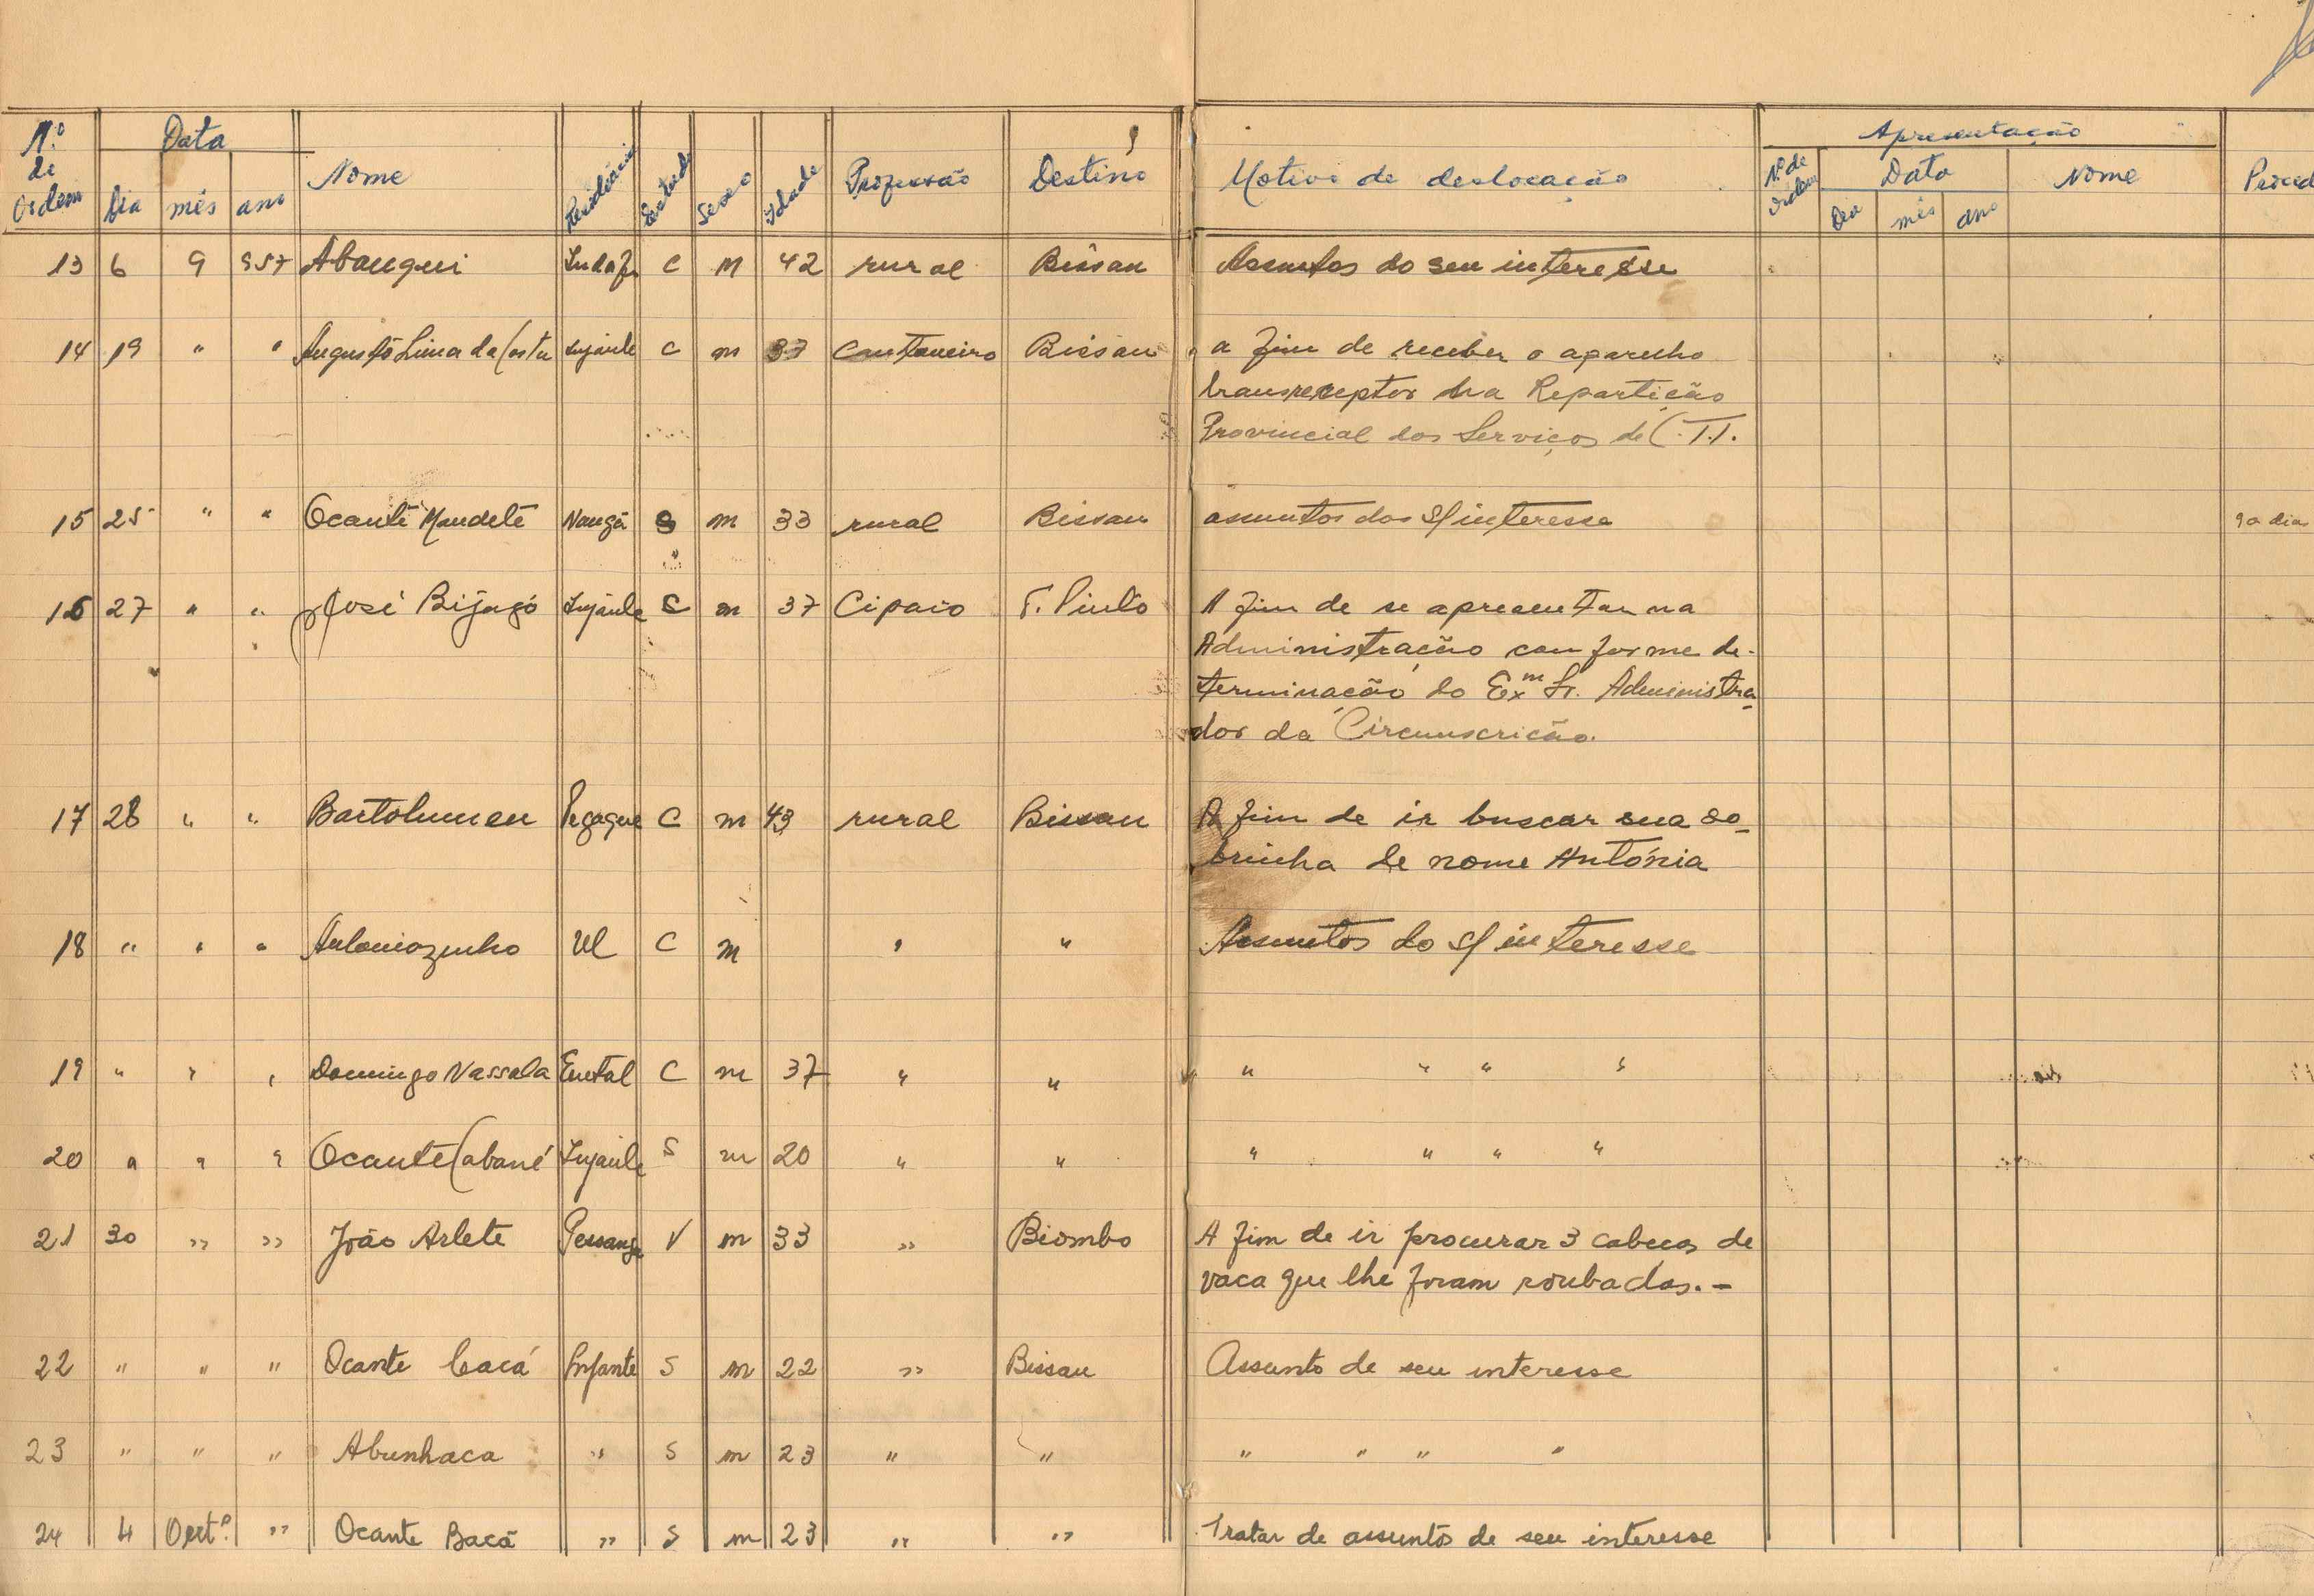 N.º de Ordem Data Nome Residência Estado Sexo Idade Profissão Destino Motivo de deslocação Apresentação
dia mês ano Nº de ordem Data Nome Proced
Dia mês ano
13 6 9 957 Abangui C M 42 rural Bissau Assuntos do seu interesse
14 19 " " Augusto Lima da Costa Sujaule C m 33 Cantoneiro Bissau a fim de receber o aparelho
transreceptor na Repartição
Provincial dos Serviços de C.T.T.
15 25 " " Ocante Mandeté Nangã S m 33 rural Bissau assuntos dos s/ interesse 90 dias
16 27 " " José Bijagó Sujaule C m 37 Cipaio T. Pinto A fim de se apresentar na
Administração conforme de-
terminação do Exm Sr. Administra-
dor da Circunscrição.
17 28 " " Bartolumeu Pegague C m 43 rural Bissau A fim de ir buscar sua so-
brinha de nome Antónia
18 " " " Antoniozinho Ul C m " " Assuntos do s/ interesse
19 " " " Domingo Vassala C m 37 " " " " " "
20 " " " Ocante Cabané Sujaule S m 20 " " " " " "
21 30 " " João Arlete V m 33 " Biombo A fim de ir procurar 3 cabeças de
vaca que lhe foram roubadas. -
22 " " " Ocante Cacá Infante S m 22 " Bissau Assunto de seu interesse
23 " " " Abunhaca " S m 23 " " " " " "
24 4 Outº. " Ocante Bacã " S m 23 " " Tratar de assuntos de seu interesse